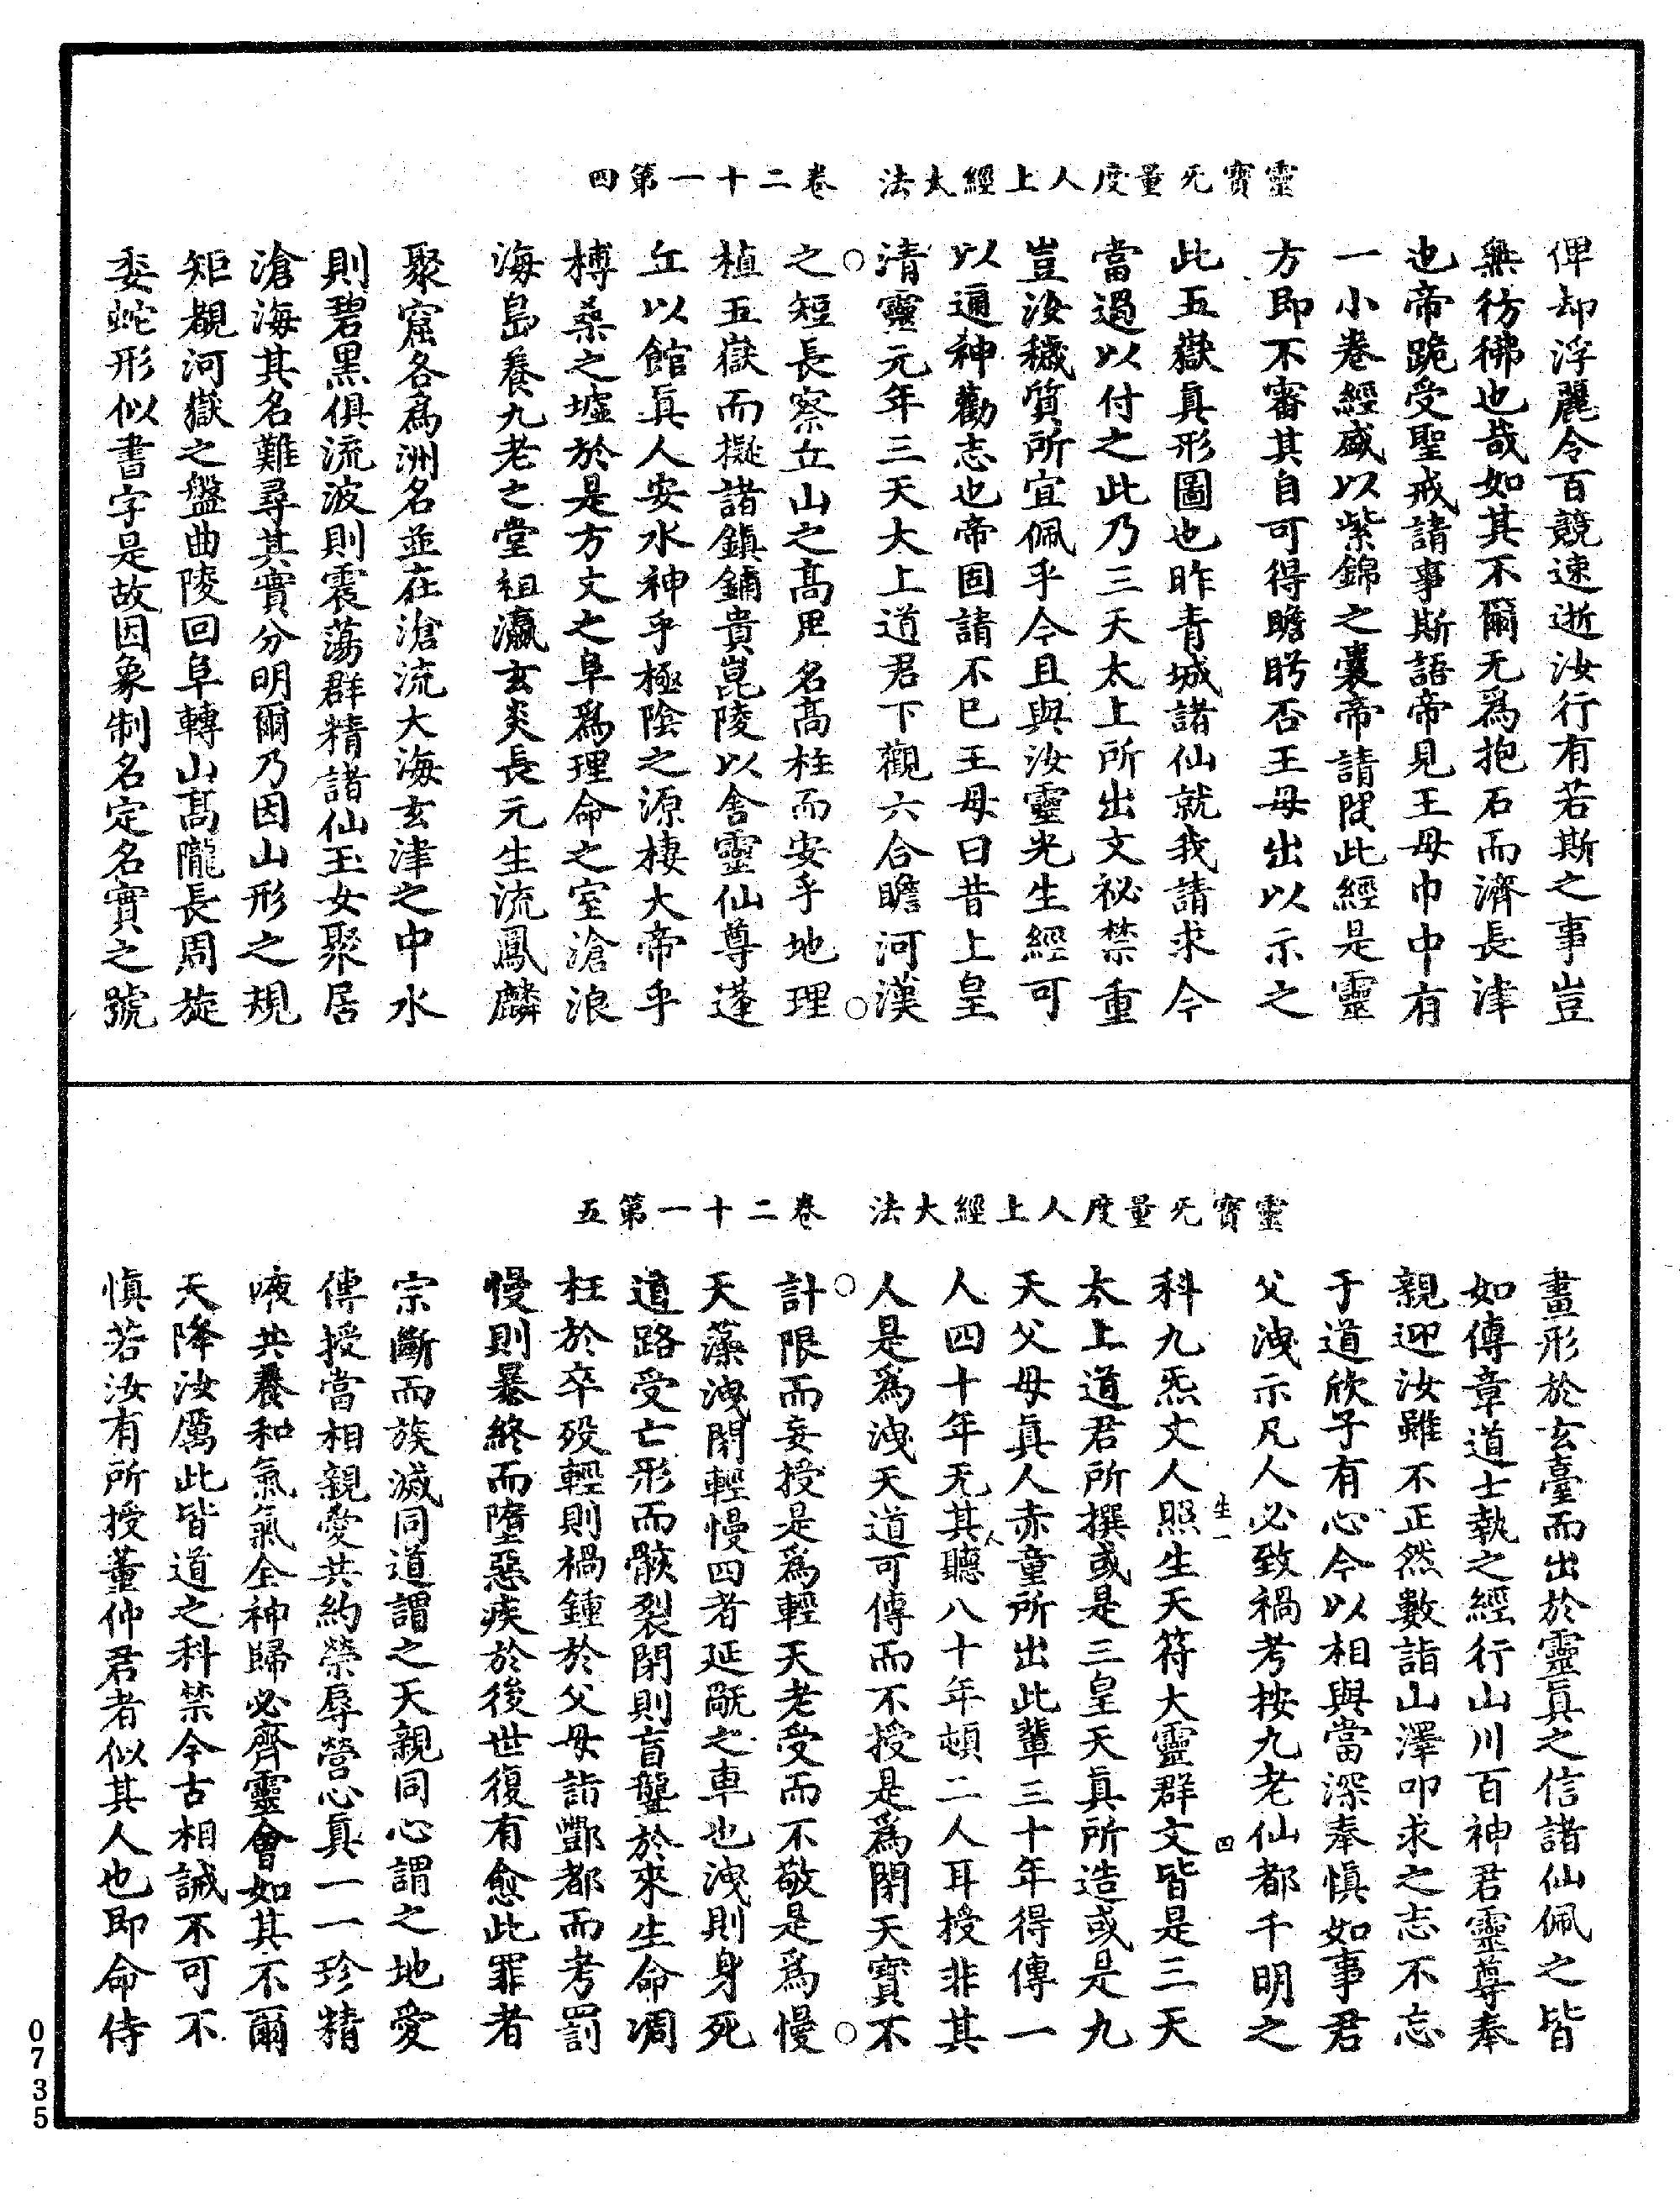 靈寶无量度人上經大法　卷二十一第四
俾却浮麗令百競速逝汝行有若斯之事豈
無彷彿也哉如其不爾无爲抱石而濟長津
也帝跪受聖戒請事斯語帝見王母巾中有
一小卷經盛以紫錦之囊帝請問此經是靈
方即不審其自可得瞻盻否王母出以示之
此五嶽真形圖也昨青城諸仙就我請求今
當過以付之此乃三天太上所出文祕禁重
豈汝穢質所宜佩乎今且與汝靈光生經可
以通神勸志也帝固請不已王母曰昔上皇
清靈元年三天太上道君下觀六合瞻河漢
之短長察丘山之高卑名高柱而安乎地理
植五嶽而擬諸鎮鋪貴崑陵以舍靈仙尊蓬
丘以館真人安水神乎極陰之源棲大帝乎
榑桑之墟於是方丈之阜爲理命之室滄浪
海島養九老之堂祖瀛玄炎長元生流鳳麟
聚窟各爲洲名並在滄流大海玄津之中水
則碧黑俱流波則震蕩群精諸仙玉女聚居
滄海其名難尋其實分明爾乃因山形之規
矩覩河嶽之盤曲陵回阜轉山高隴長周旋
委蛇形似書字是故因象制名定名實之號
靈寶无量度人上經大法　卷二十一第五
畫形於玄臺而出於靈真之信諸仙佩之皆
如傳章道士執之經行山川百神君靈尊奉
親迎汝雖不正然數詣山澤叩求之志不忘
于道欣子有心今以相與當深奉慎如事君
父洩示凡人必致禍考按九老仙都千明之
生一　四
科九炁丈人照生天符大靈群文皆是三天
太上道君所撰或是三皇天真所造或是九
天父母真人赤童所出此輩三十年得傳一
人四十年无其人聽八十年頓二人耳授非其
人是爲洩天道可傳而不授是爲閉天寶不
計限而妄授是爲輕天老受而不敬是爲慢
天藻洩閉輕慢四者延𣧑之車也洩則身死
道路受亡形而骸裂閉則盲聾於來生命凋
枉於卒歿輕則禍鍾於父母詣酆都而考罰
慢則暴終而墮惡疾於後世復有愈此罪者
宗斷而族滅同道謂之天親同心謂之地愛
傳授當相親愛共約榮辱營心真一一珍精
唊共養和氣氣全神歸必齊靈會如其不爾
天降汝厲此皆道之科禁今古相誡不可不
慎若汝有所授董仲君者似其人也即命侍
0735